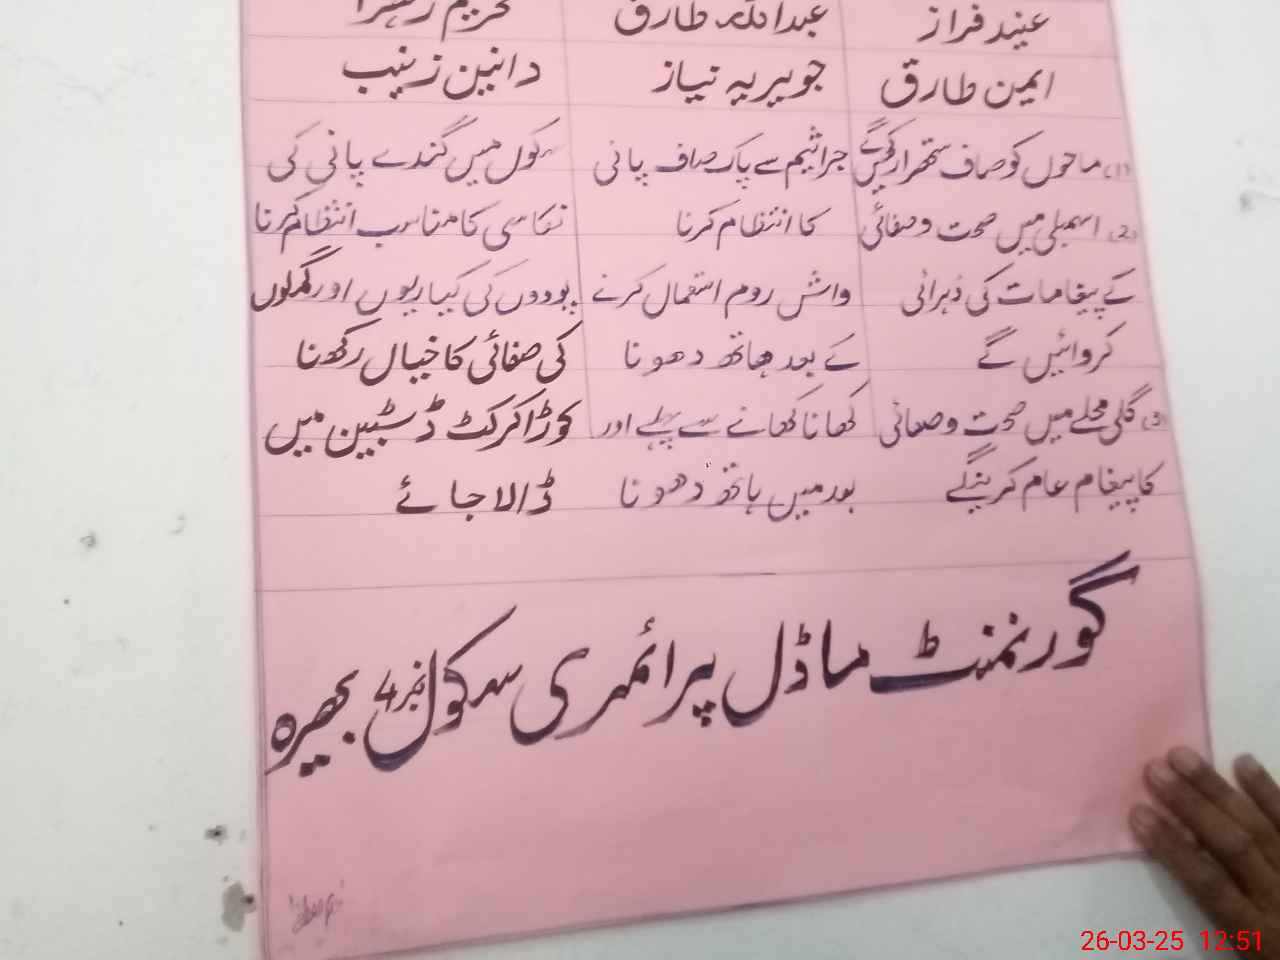 عبید فراز عبداللہ طارق تحریم زہرا
ایمن طارق جویریہ نیاز دانین زینب
(1) ماحول کو صاف ستھرا رکھیں گے جراثیم سے پاک صاف پانی سکول میں گندے پانی کی
(2) اسمبلی میں صحت و صفائی کا انتظام کرنا نکاسی کا مناسب انتظام کرنا
کے پیغامات کی دُہرائی واش روم استعمال کرنے پودوں کی کیاریوں اور گملوں
کروائیں گے کے بعد ہاتھ دھونا کی صفائی کا خیال رکھنا
(3) گلی محلے میں صحت و صفائی کھانا کھانے سے پہلے اور کوڑا کرکٹ ڈسٹبین میں
کا پیغام عام کرینگے بعد میں ہاتھ دھونا ڈالا جائے
گورنمنٹ ماڈل پرائمری سکول نمبر 4 بھیرہ
26-03-25 12:51